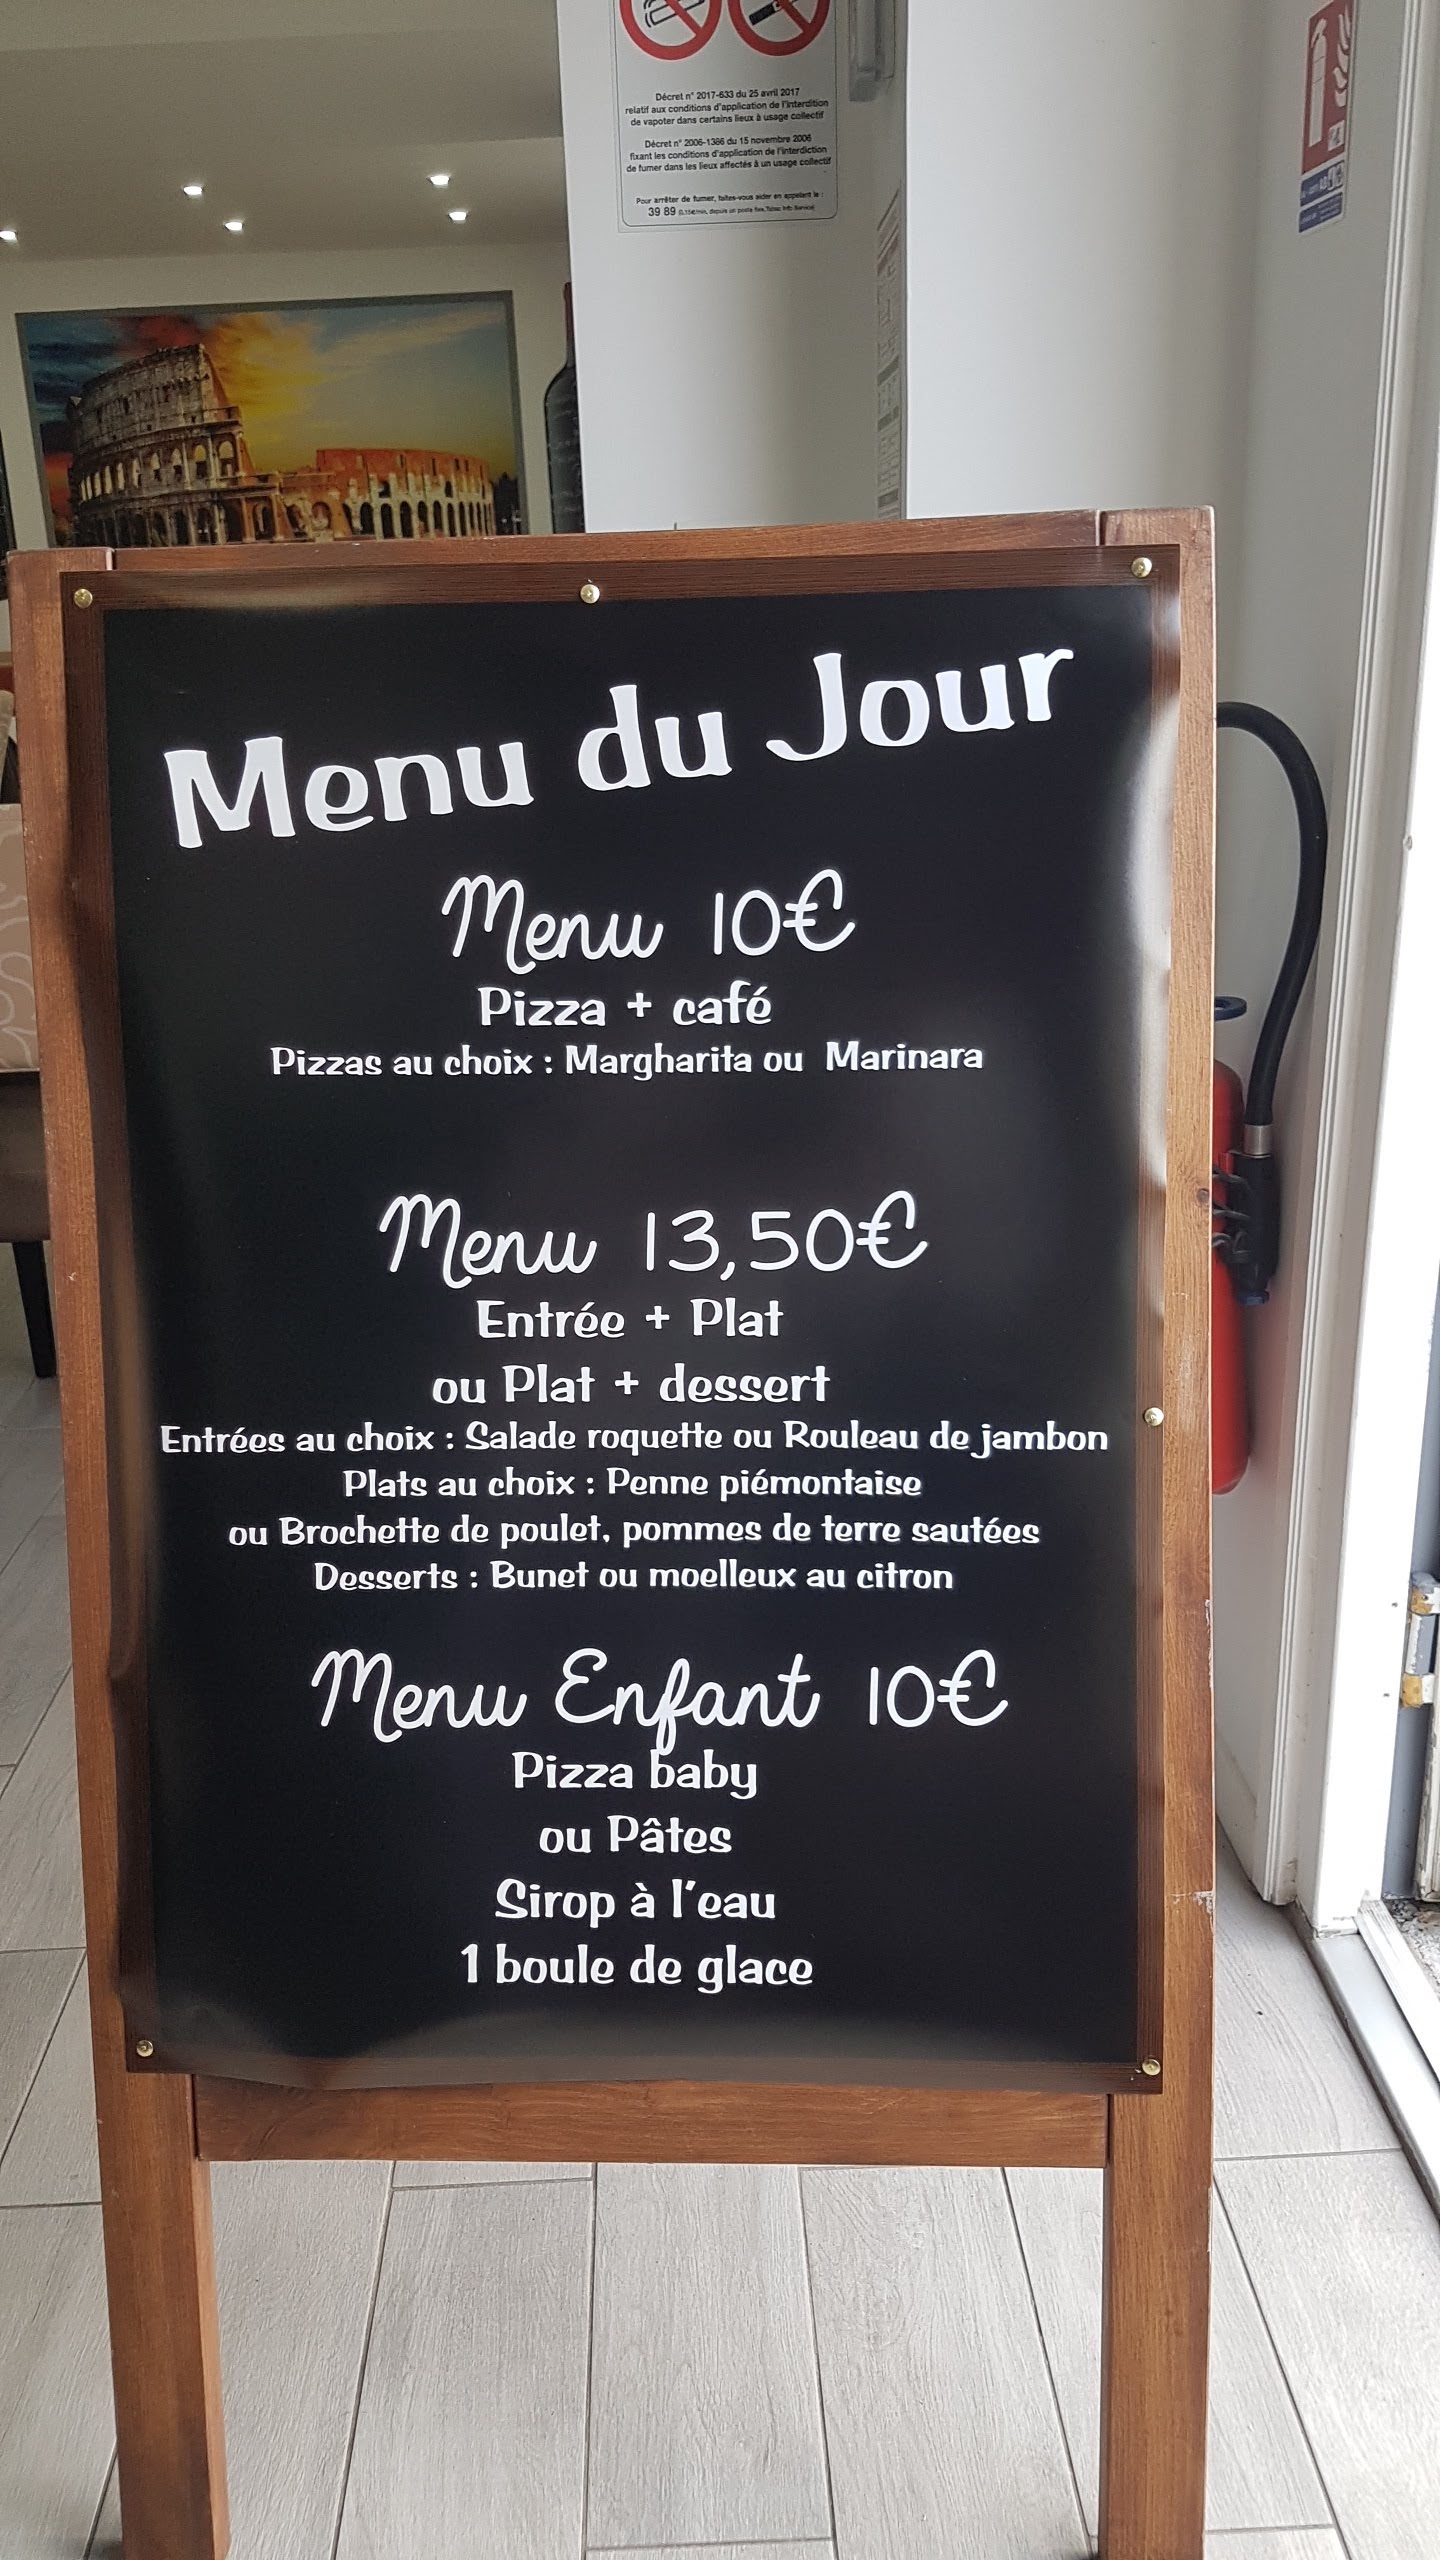 Décret n° 2017-633 du 25 avril 2017
relatif aux conditions d'application de l'interdition
de vapoter dans certains lieux à usage collectif
Décret n° 2006-1386 du 15 novembre 2006
fixant les conditions d'application de l'interdiction
de fumer dans les lieux affectés à un usage collectif
Pour arrêter de fumer, faites-vous aider en appelant le :
39 89 (0,15€/min, depuis un poste fixe, Tabac Info Service)
Menu du Jour
Menu 10€
Pizza + café
Pizzas au choix : Margharita ou Marinara
Menu 13,50€
Entrée + Plat
ou Plat + dessert
Entrées au choix : Salade roquette ou Rouleau de jambon
Plats au choix : Penne piémontaise
ou Brochette de poulet, pommes de terre sautées
Desserts : Bunet ou moelleux au citron
Menu Enfant 10€
Pizza baby
ou Pâtes
Sirop à l'eau
1 boule de glace